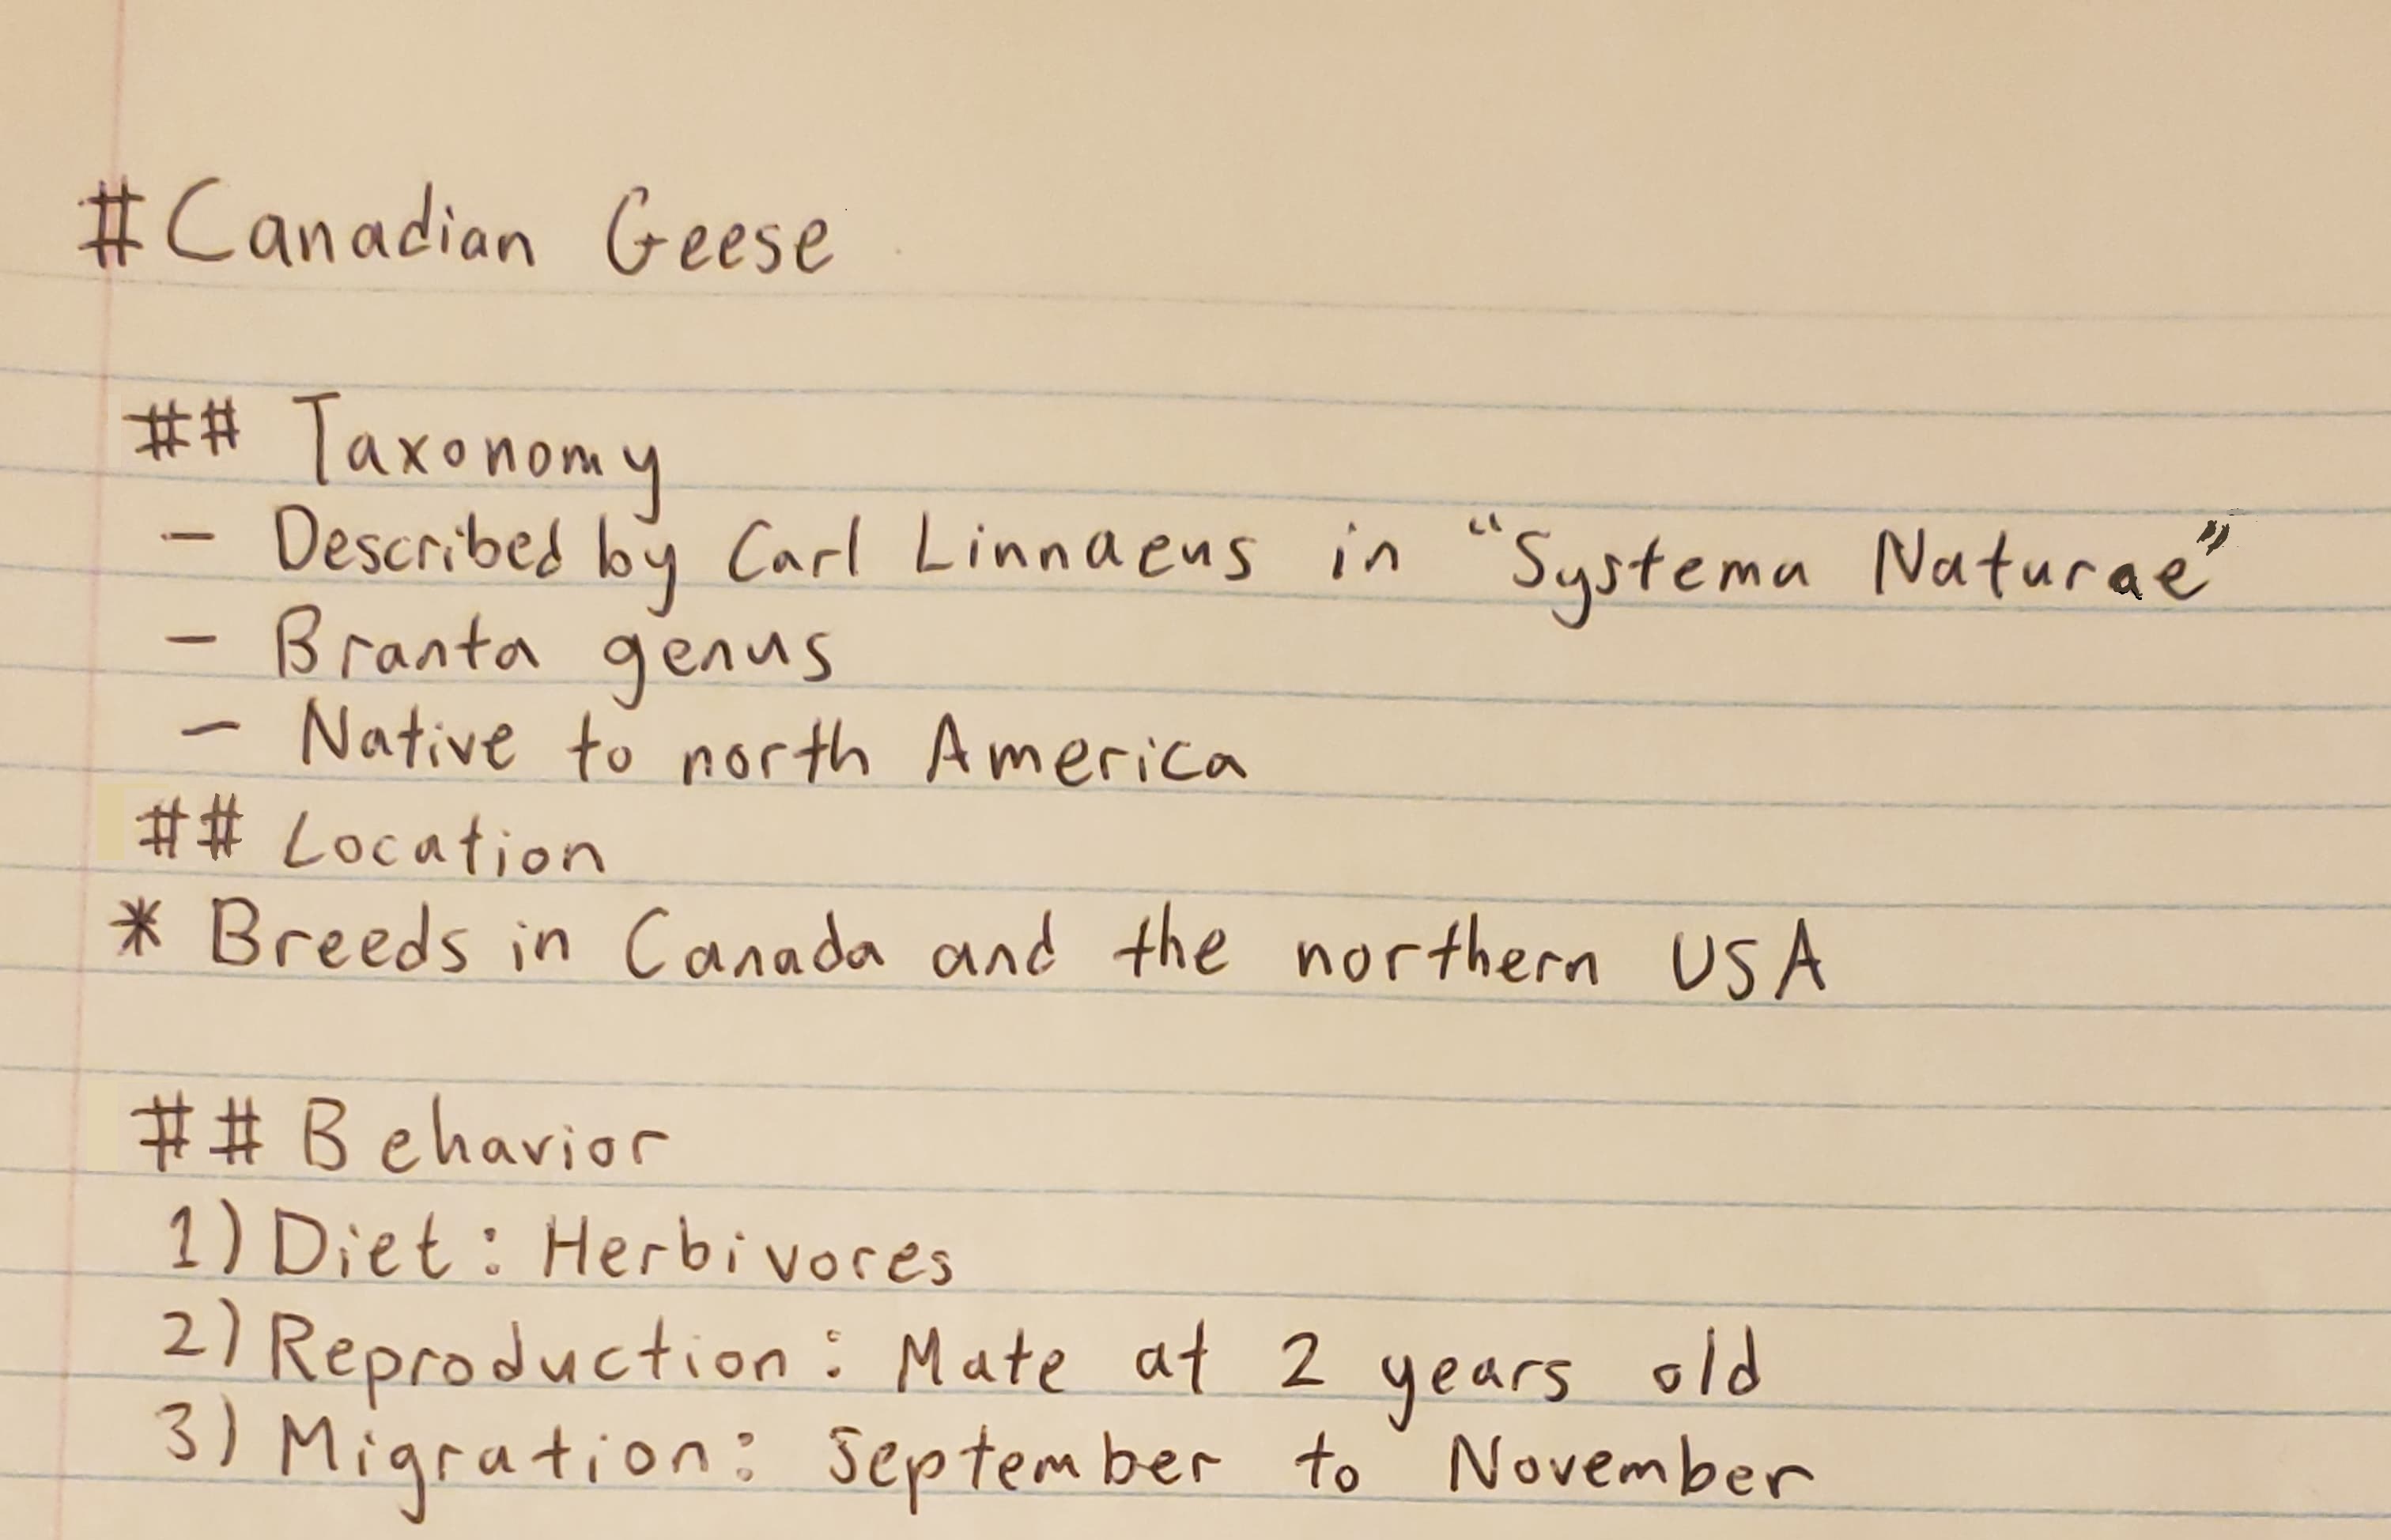 #Canadian Geese
## Taxonomy
- Described by Carl Linnaeus in “Systema Naturae”
- Branta genus
- Native to north America
## Location
* Breeds in Canada and the northern USA
## Behavior
1) Diet: Herbivores
2) Reproduction: Mate at 2 years old
3) Migration: September to November